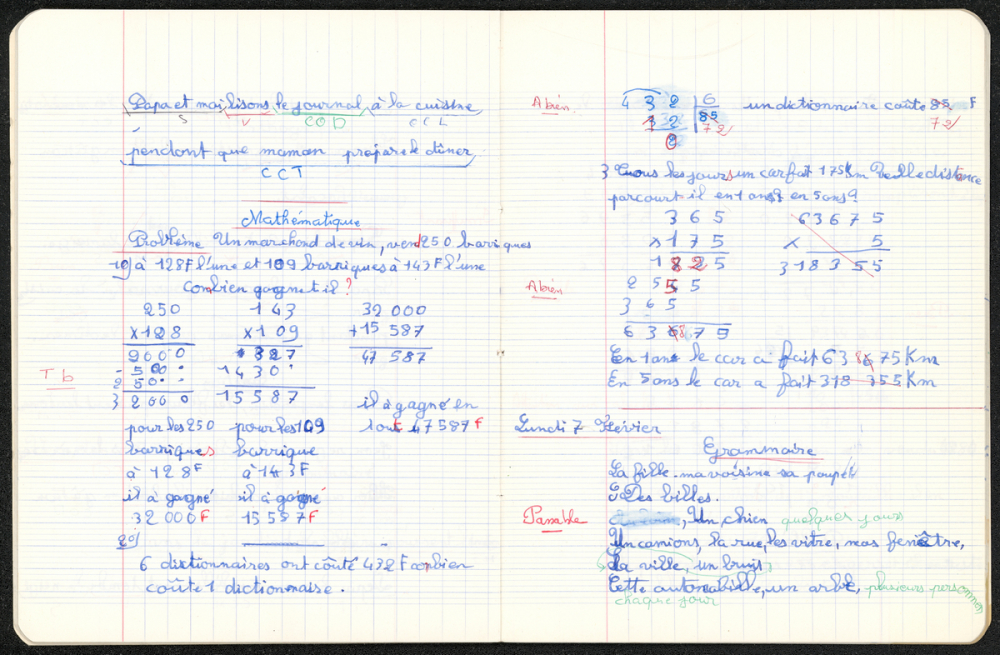 Papa et moi lisons le journal à la cuisine
S V COD CCL
pendant que maman prépare le dîner
CCT
Mathématique
Problème Un marchand de vin, vend 250 barriques
1º) à 128F l'une et 109 barriques à 143F l'une
Combien gagne t il ?
250 143 32 000
x128 x109 +15 587
2000 1287 47 587
500 1430
250
32000 15587
Tb
il a gagné en
tout 47587 F
pour les 250 pour les 109
barriques barrique
à 128F à 143F
il a gagné il a gagné
32 000F 15587F
2º)
6 dictionnaires ont coûté 432F combien
coûte 1 dictionnaise.
Abien
432 6
32 85
0 72
un dictionnaire coûte 85 F
72
3 Tous les jours un car fait 175Km Quelle distance
parcourt il en 1 ans? en 5 ans?
365 63675
x175 x 5
1825 318355
2555
365
63875
Abien
En 1 ans le car a fait 63875Km
En 5 ans le car a fait 318 355Km
Lundi 7 Février
Grammaire
La fille. ma voisine sa poupée
Des billes.
Passable
, Un chien quelques jours
Un camions, la rue, les vitre, mas fenêtre,
La ville, un bruit
Cette automobille, un arbe, plusieurs personnes
chaque jour